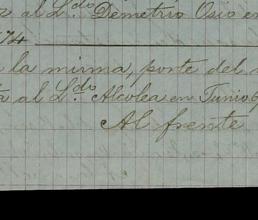 al L.do Demetrio Osio en
74
la misma, porte del
al L.do Alcolea en Junio 6
Al frente